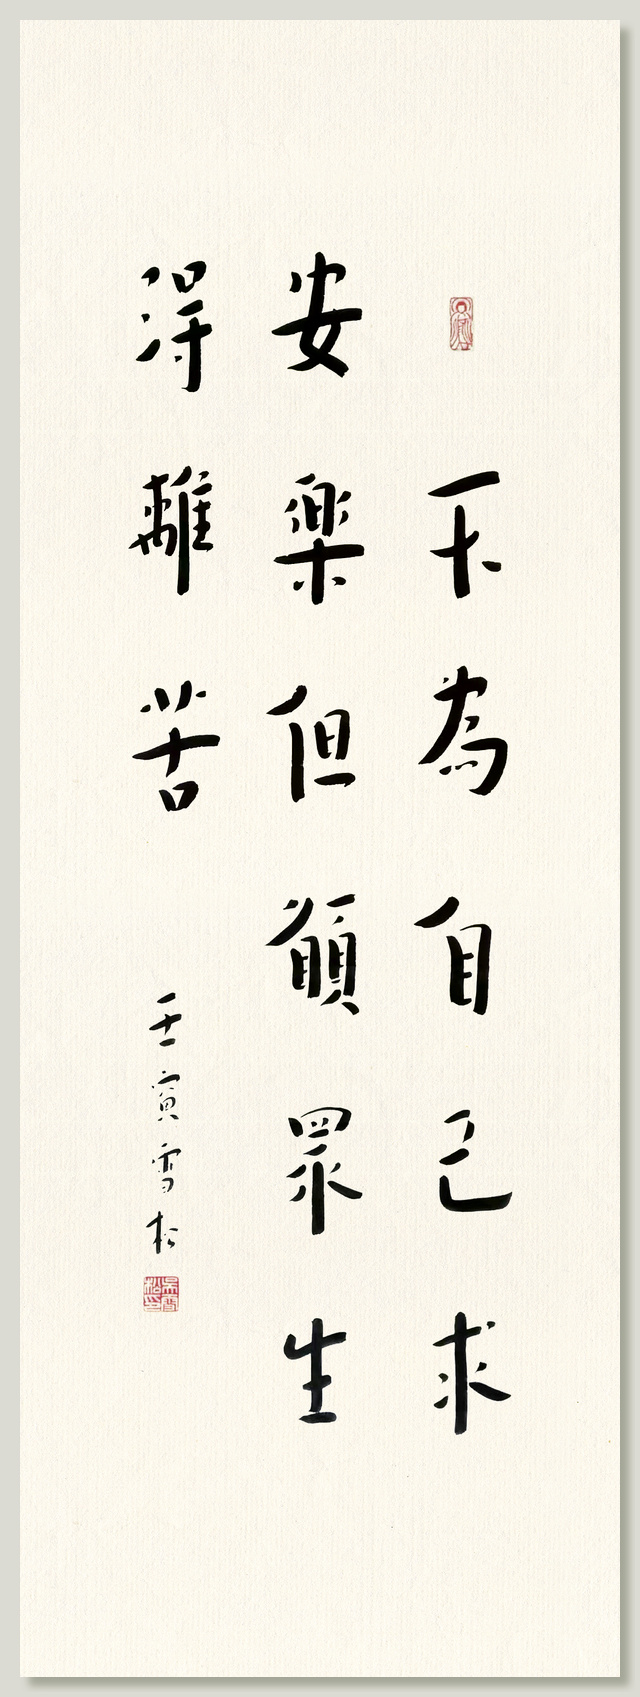 不為自己求
安樂但願眾生
得離苦
壬寅雪松